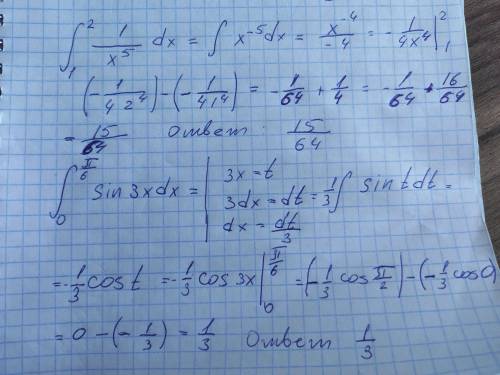 ∫₁² 1/x⁵ dx = ∫ x⁻⁵dx = x⁻⁴/-4 = -1/4x⁴ |₁²
(-1/4 2⁴) - (-1/4 1⁴) = -1/64 + 1/4 = -1/64 + 16/64
= 15/64 Ответ: 15/64
∫₀^(π/6) sin 3x dx = | 3x = t
3dx = dt = 1/3 ∫ sin t dt =
dx = dt/3
= -1/3 cos t = -1/3 cos 3x |₀^(π/6) = (-1/3 cos π/2) - (-1/3 cos 0)
= 0 - (-1/3) = 1/3 Ответ 1/3